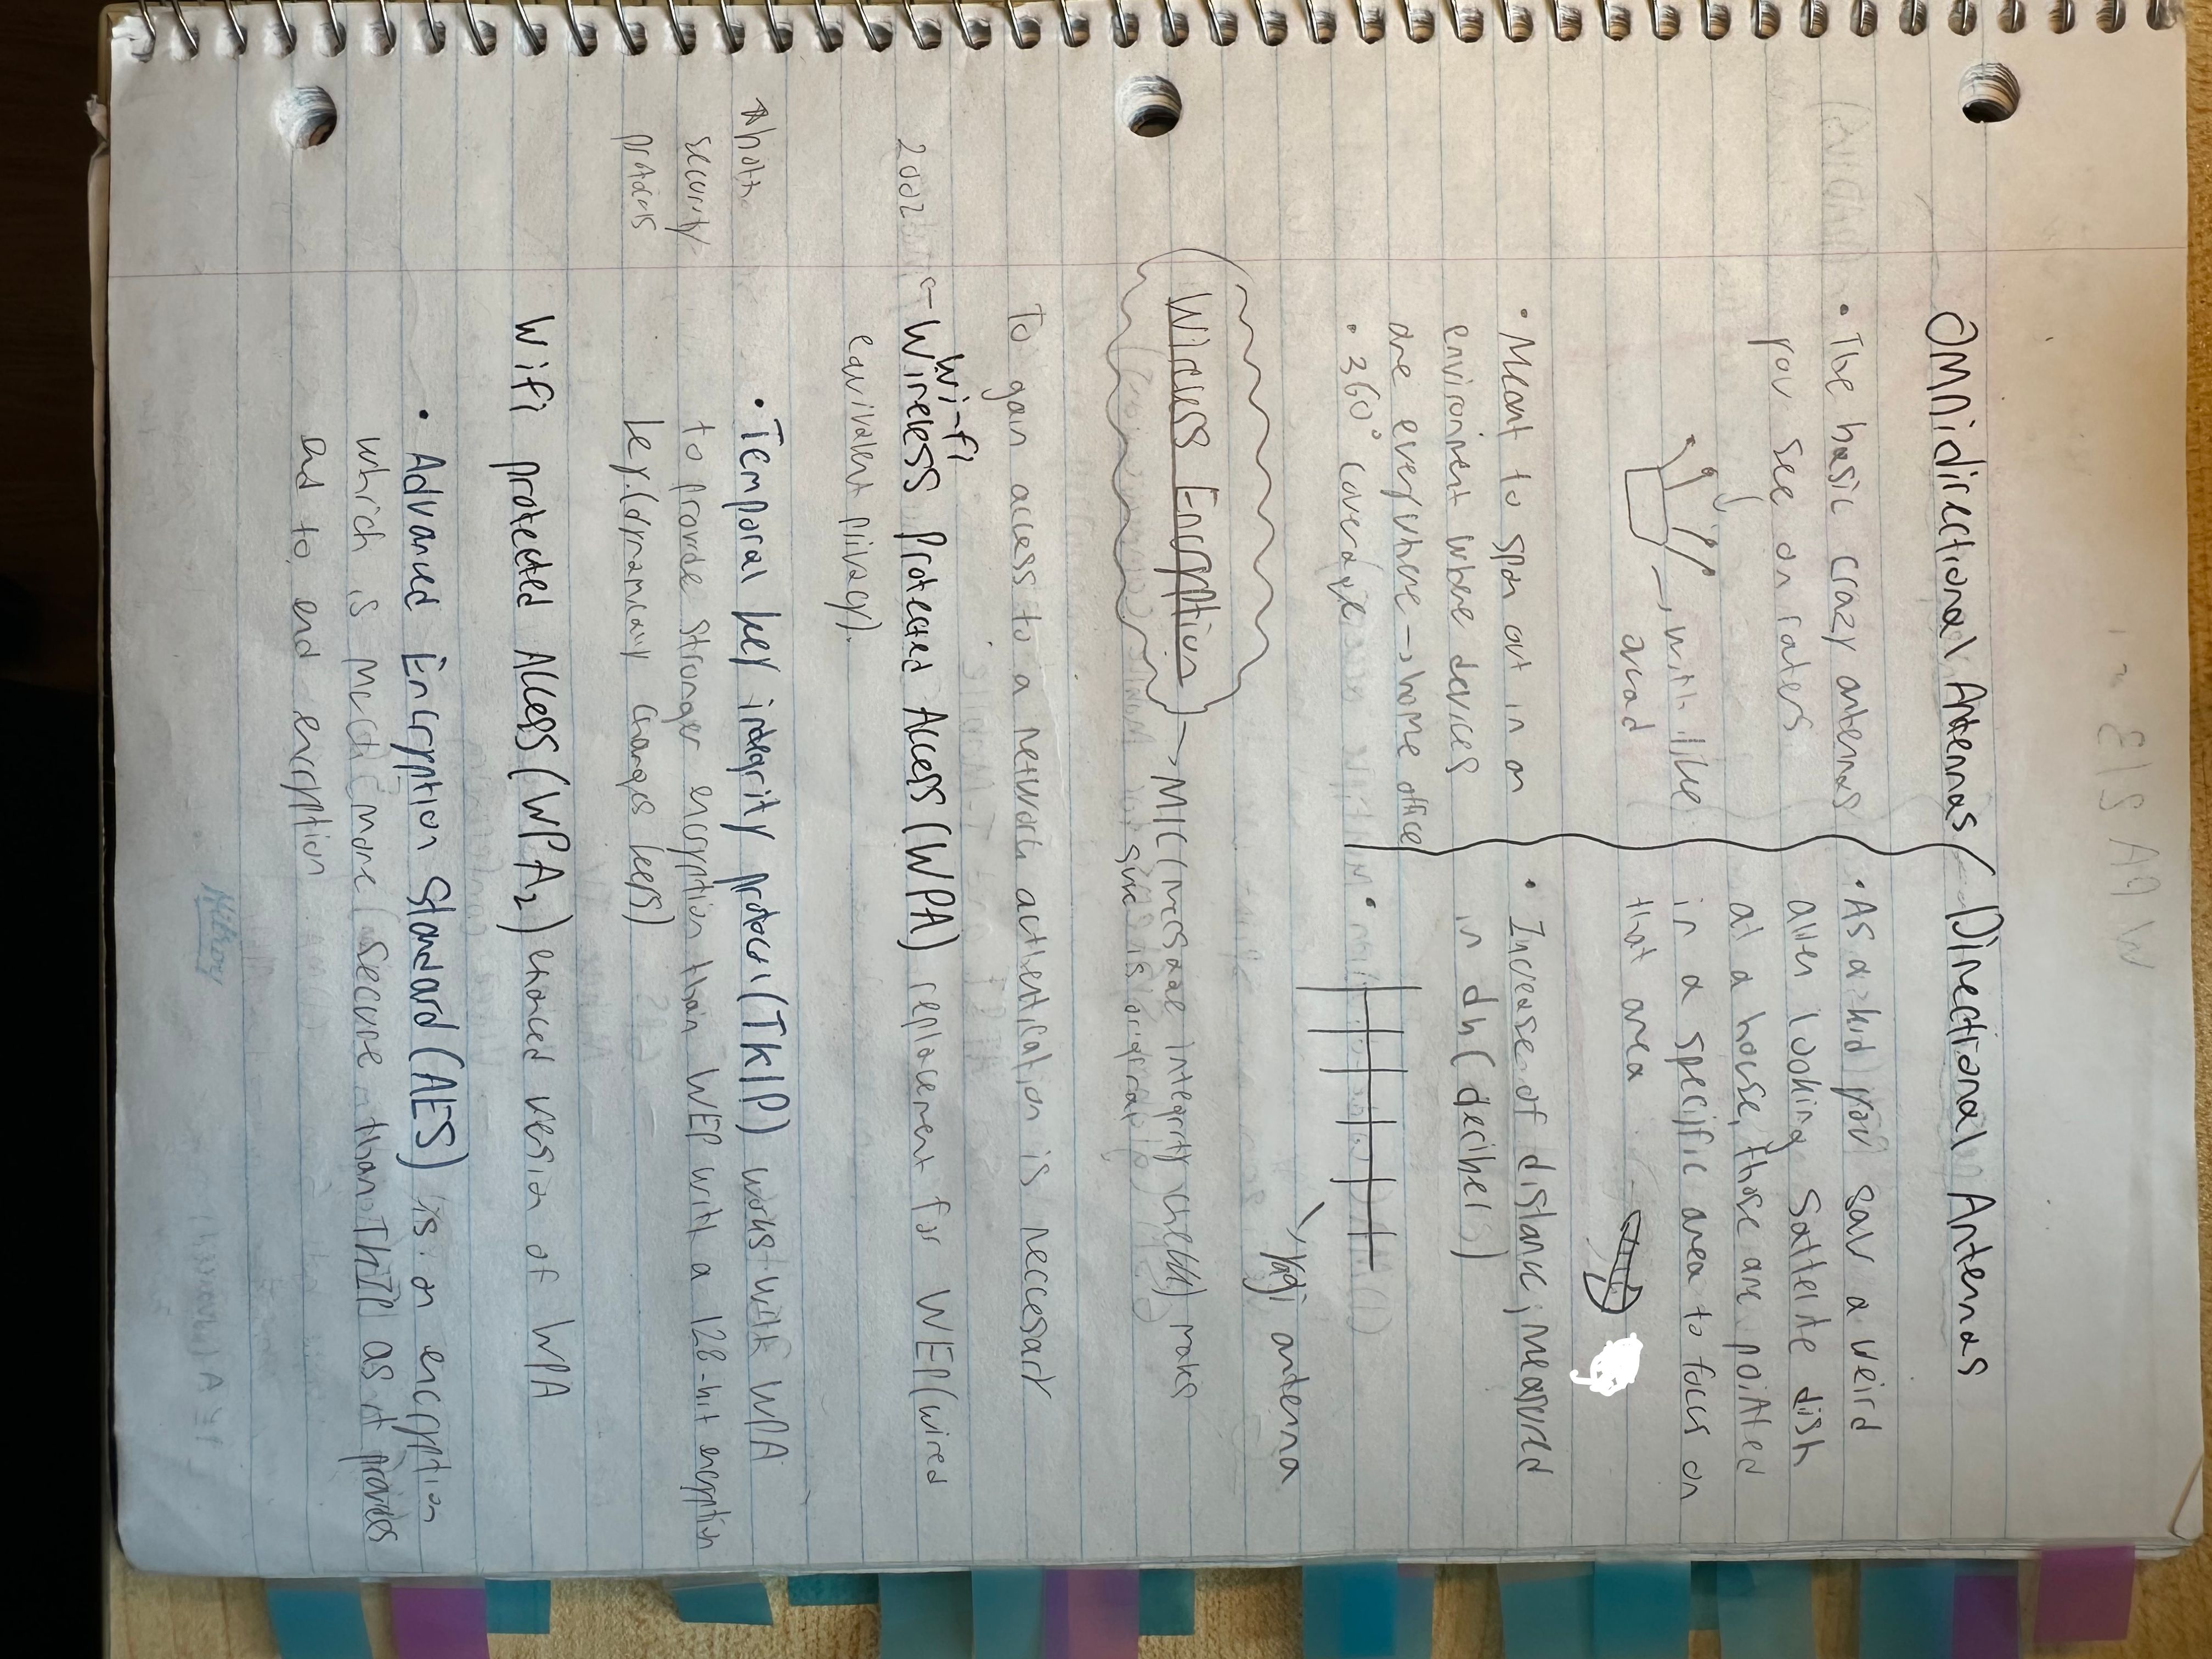 Omnidirectional Antennas
• The basic crazy antennas
you see on raters
→ with like
• Meant to span out in an
environment where devices
are everywhere → home office
• 360° coverage
Directional Antennas
• As a kid you saw a weird
alien looking Sattelite dish
at a house, those are pointed
in a specific area to focus on
that area
• Increase of distance; measured
in db (decibel)
•
Yagi antenna
Wireless Encryption → MIC (message integrity check) make
sure is original
To gain access to a network authentication is neccesary
Wi-fi
2002 ← Wireless Protected Access (WPA) replacement for WEP (wired
equivalent privacy).
• Temporal key integrity protocol (TKIP) works with WPA
to provide stronger encryption than WEP with a 128-bit encryption
key. (dynamically changes keys)
*both
security
protocols
Wifi protected Access (WPA2) enhanced version of WPA
• Advanced Encryption Standard (AES) is an encryption
which is much more secure than TKIP as it provides
end to end encryption
Hilroy